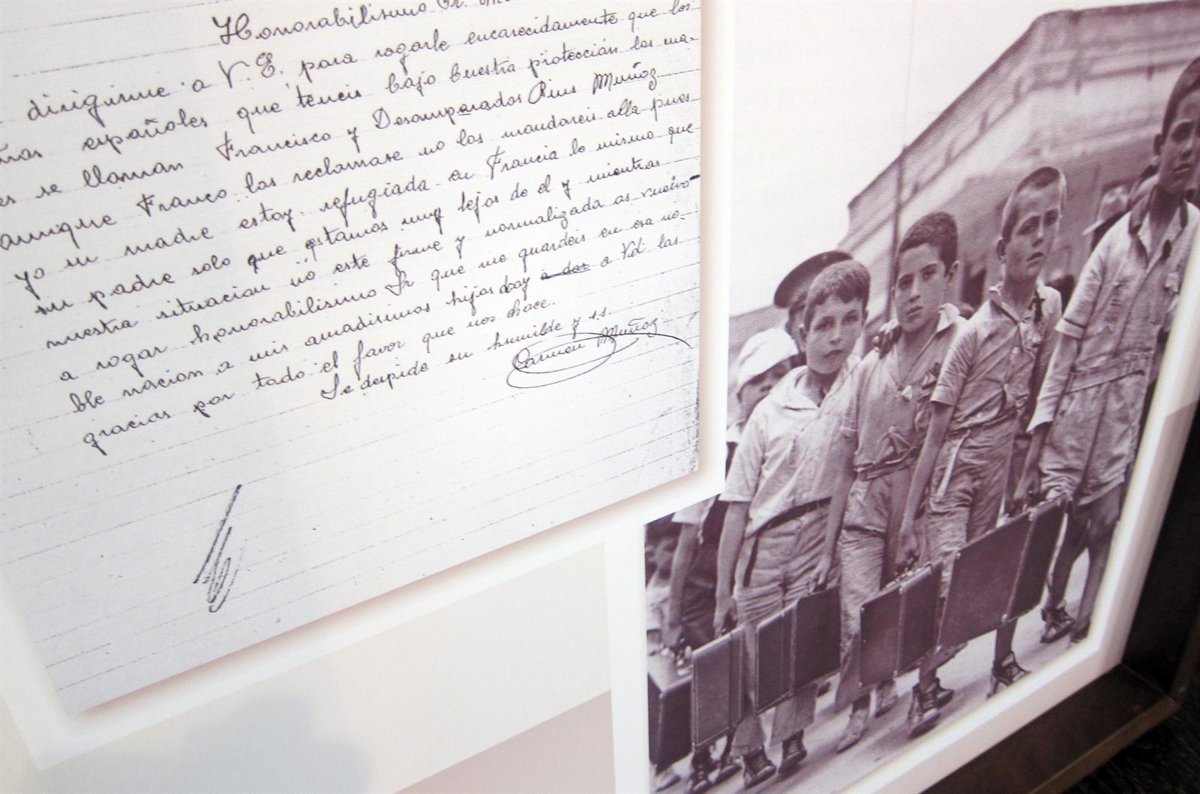 Honorabilisimo Sr.
dirigirme a V.E. para rogarle encarecidamente que los
españoles que teneis bajo buestra protección los
se llaman Francisco y Desamparados Rius Muñoz
aunque Franco los reclamase no los mandareis alla pues
yo su madre estoy refugiada en Francia lo mismo que
su padre solo que estamos muy lejos de el y mientras
nuestra situacion no este firme y normalizada os vuelvo
a rogar honorabilisimo Sr que me guardeis en esa no-
ble nacion a mis amadisimos hijos doy a Vd. las
gracias por todo el favor que nos hace.
Se despide su humilde y s.s.
Carmen Muñoz